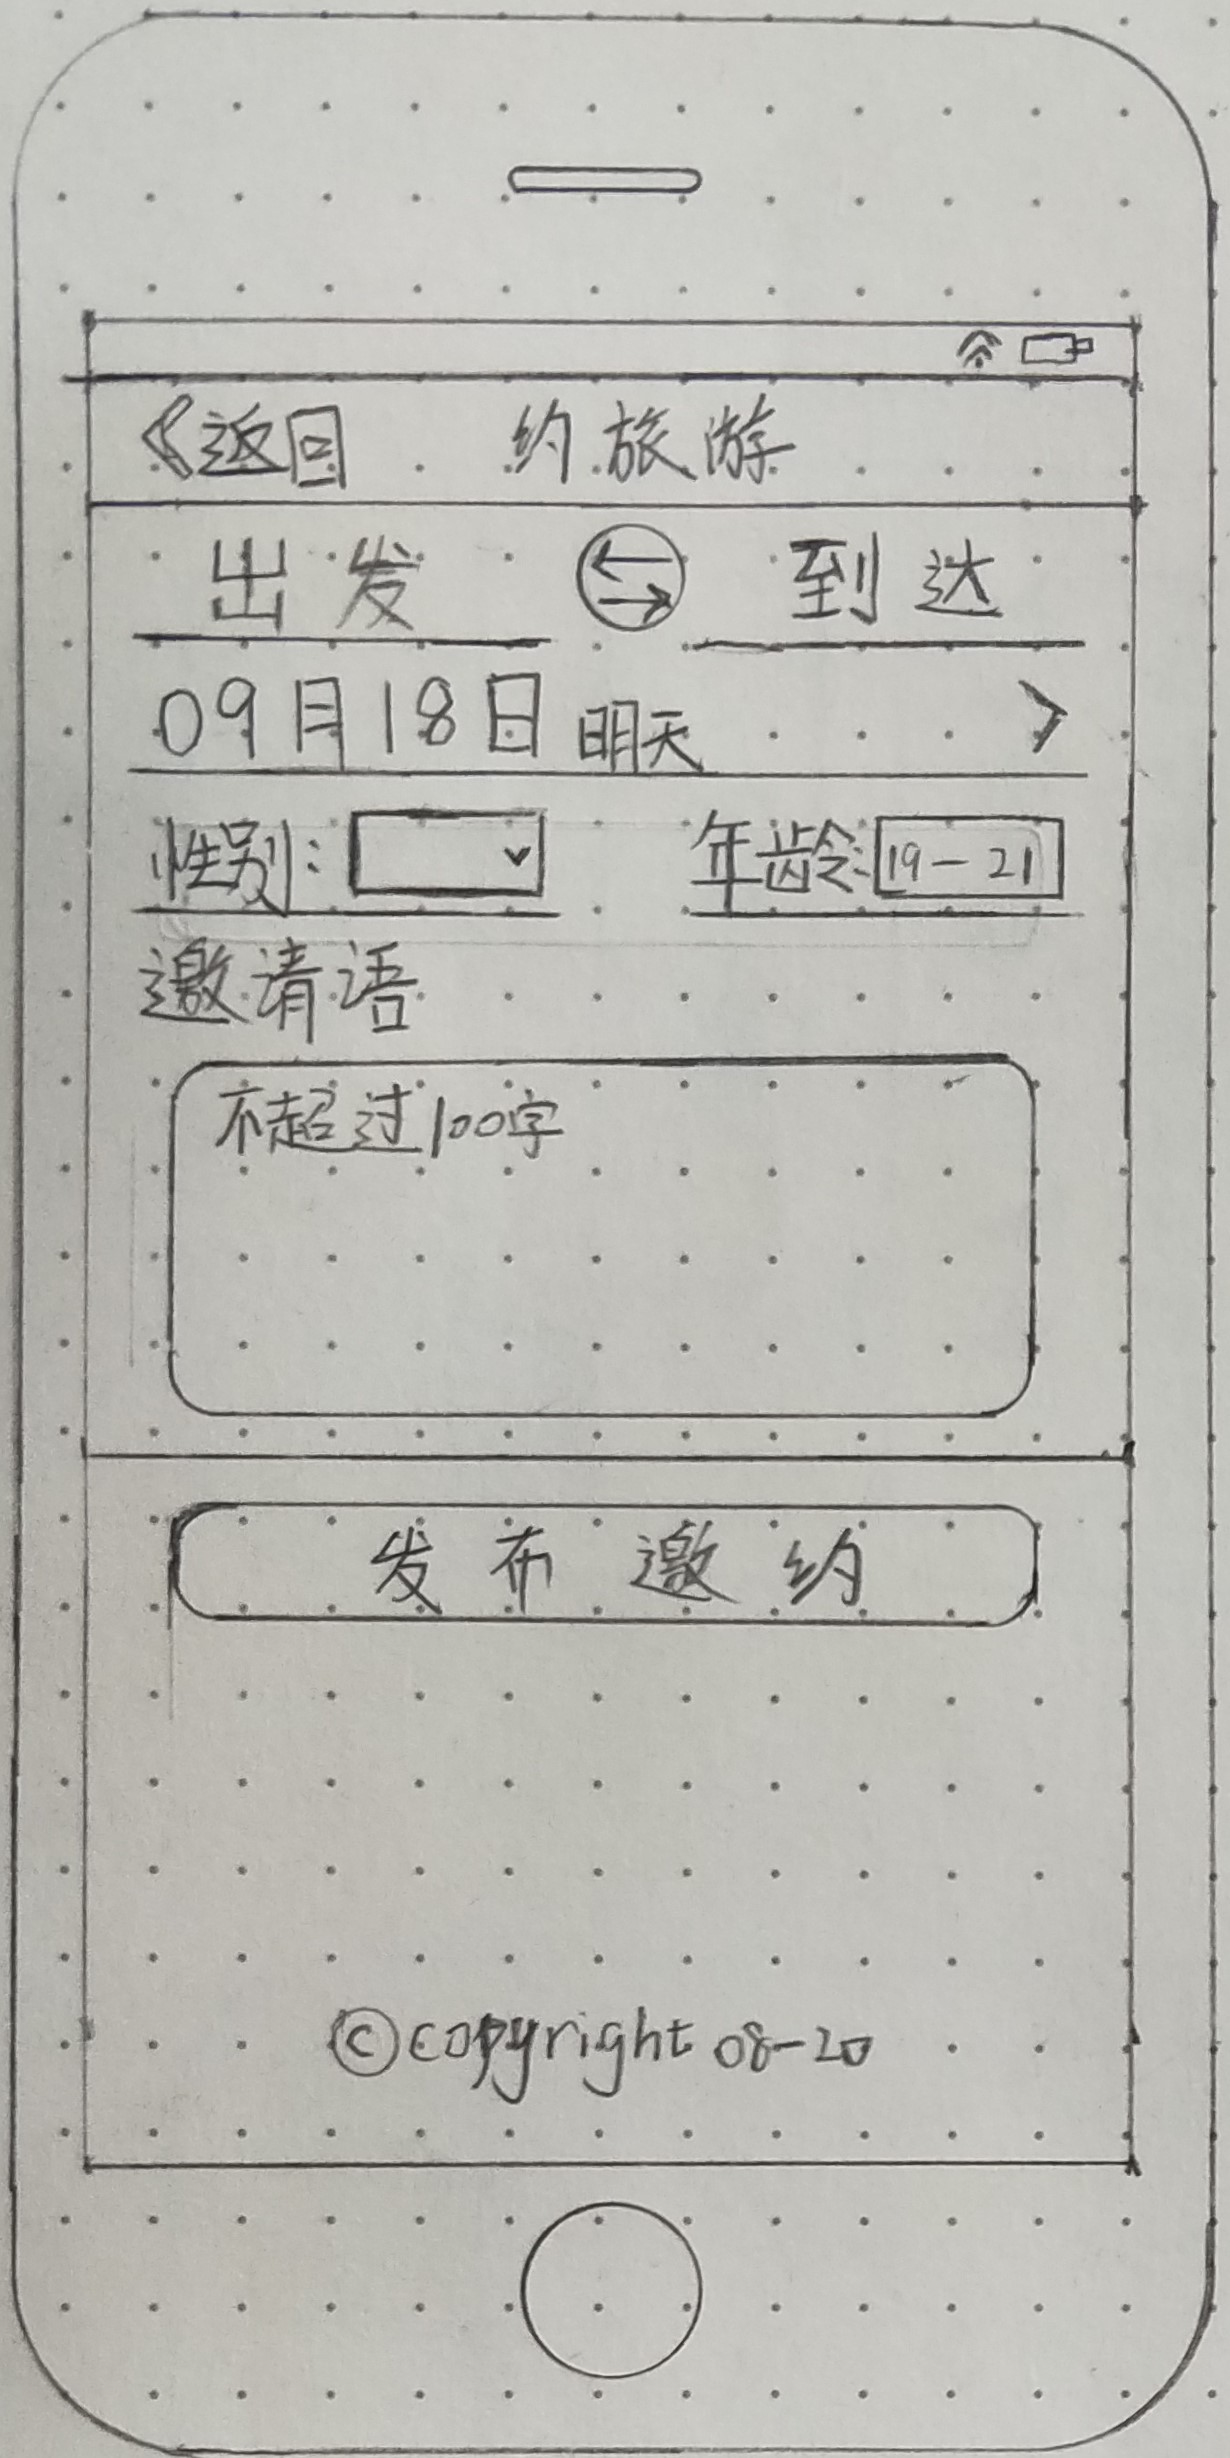 返回 约旅游
出发 到达
09月18日 明天
性别: 年龄: 19-21
邀请语
不超过100字
发布邀约
©copyright 08-20